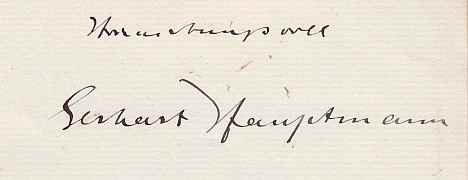 Hochachtungsvoll
Gerhart Hauptmann